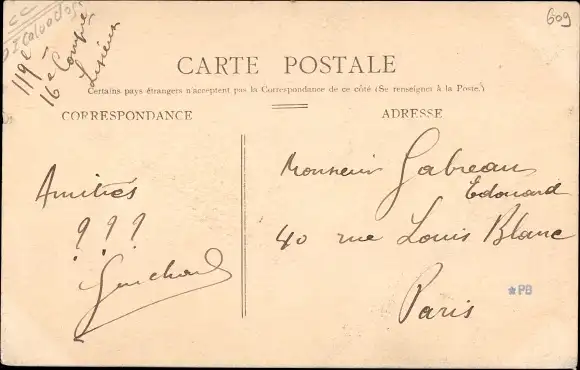 CC
DI Calvados
119e
16e Compie
Lisieux
609
CARTE POSTALE
Certains pays étrangers n'acceptent pas la Correspondance de ce côté (Se renseigner à la Poste.)
CORRESPONDANCE
ADRESSE
Amitiés
? ? ?
Guichard
Monsieur Gabreau
Edouard
40 rue Louis Blanc
Paris
*PB